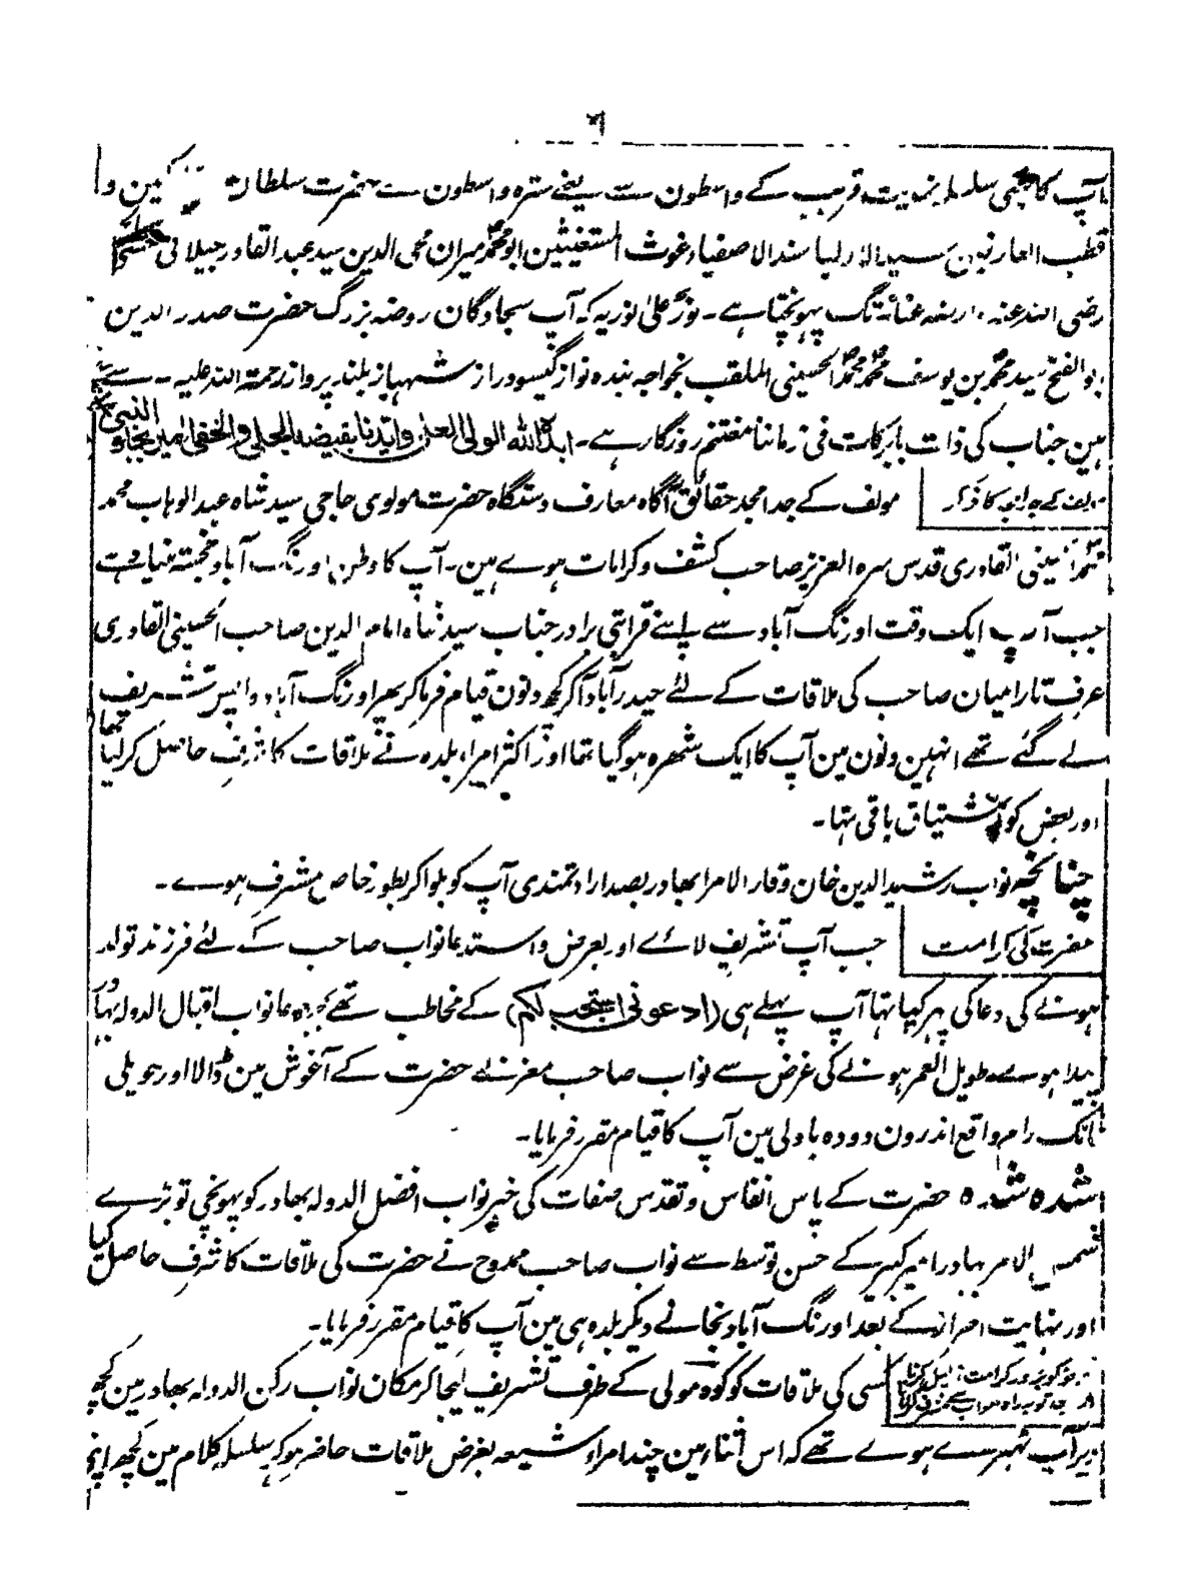 ۶
آپ کا جسمی سلسلہ نہایت قریب کے واسطون سے یعنے سترہ واسطون سے حضرت سلطان
قطب العارفین سید الاولیا سند الاصفیاء غوث المستغیثین ابو محمد میران محی الدین سید عبد القادر جیلانی
رضی اللہ عنہ وارضہ عنا تک پہونچتا ہے۔ نورٌ علیٰ نور یہ کہ آپ سجادگان روضہ بزرگ حضرت صدر الدین
ابو الفتح سید محمد بن یوسف محمد محمد الحسینی الملقب بخواجہ بندہ نواز گیسو دراز شہباز بلند پرواز رحمتہ اللہ علیہ ۔ سے
ہین جناب کی ذات بابرکات فی زماننا مغتنم روزگار ہے۔ ابدہ اللہ الولی العلی وایدنا بفیضہ الجلی والخفی امین بجاہ النبی
مولف کے جد امجد کا ذکر
مولف کے جد امجد حقائق آگاہ معارف دستگاہ حضرت مولوی حاجی سید شاہ عبد الوہاب محمد
محمد الحسینی القادری قدس سرہ العزیز صاحب کشف وکرامات ہوے ہین۔ آپ کا وطن اورنگ آباد خجستہ بنیاد ہے
جب آپ ایک وقت اورنگ آباد سے اپنے قرابتی برادر جناب سید شاہ امام الدین صاحب الحسینی القادری
عرف تارا میان صاحب کی ملاقات کے لئے حیدرآباد آکر کچھ دنون قیام فرما کر پھر اورنگ آباد واپس تشریف
لے گئے تھے انہین دنون مین آپ کا ایک شہرہ ہوگیا تھا اور اکثر امراء بلدہ نے ملاقات کا شرف حاصل کرلیا تھا
اور بعض کو اشتیاق باقی تہا۔
چنانچہ نواب رشید الدین خان وقار الامرا بہادر بصد ارادتمندی آپ کو بلوا کر بطور خاص مشرف ہوے۔
حضرت کی کرامت
جب آپ تشریف لائے اور بعرض واستدعا نواب صاحب کے لئے فرزند تولد
ہونے کی دعا کی پھر کیا تہا آپ پہلے ہی (ادعونی استجب لکم) کے مخاطب تھے بمجرد دعا نواب اقبال الدولہ بہادر
پیدا ہوے۔ طویل العمر ہونے کی غرض سے نواب صاحب معز نے حضرت کے آغوش مین ڈالا اور حویلی
مانک رام واقع اندرون دودہ باولی مین آپ کا قیام مقرر فرمایا۔
شدہ شدہ حضرت کے پاس انفاس وتقدس صفات کی خبر نواب افضل الدولہ بہادر کو پہونچی تو بڑے
شمس الامرا بہادر امیر کبیر کے حسن توسط سے نواب صاحب ممدوح نے حضرت کی ملاقات کا شرف حاصل کیا
اور نہایت اصرار کے بعد اورنگ آباد نجانے دیکر بلدہ ہی مین آپ کا قیام مقرر فرمایا۔
کسی کی ملاقات کو کوہ مولی کے طرف تشریف لیجا کر مکان نواب رکن الدولہ بہادر مین کچھ
دیر آپ ٹھہرے ہوے تھے کہ اس اثناء مین چند امراء شیعہ بغرض ملاقات حاضر ہو کر سلسلہ کلام مین کچھ اپنے